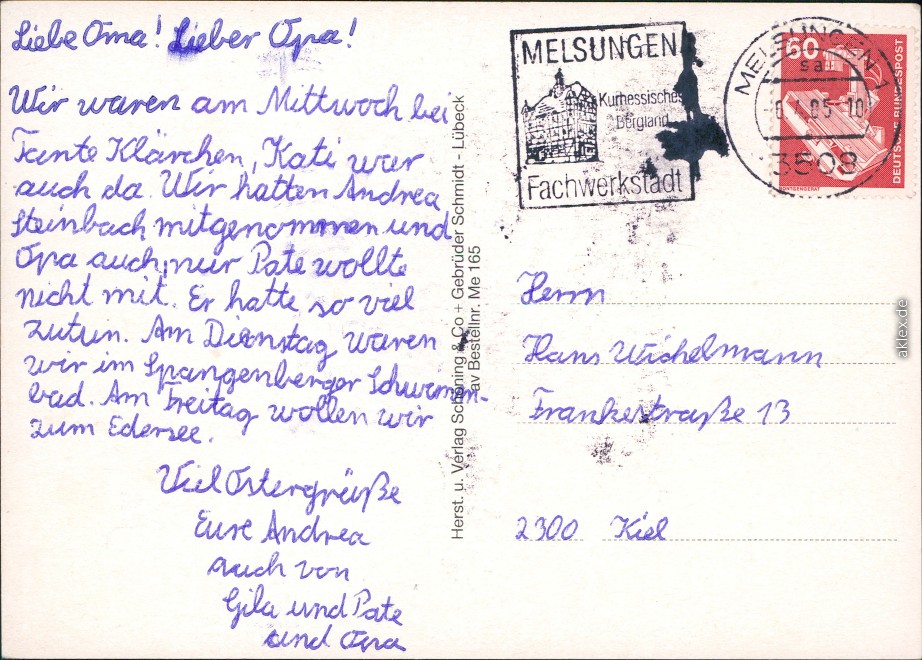 Liebe Oma! Lieber Opa!
Wir waren am Mittwoch bei
Tante Klärchen, Kati war
auch da. Wir hatten Andrea
Steinbach mitgenommen und
Opa auch, nur Pate wollte
nicht mit. Er hatte so viel
zutun. Am Dienstag waren
wir im Spangenberger Schwimm-
bad. Am Freitag wollen wir
zum Edersee.
Viel Ostergrüße
Eure Andrea
auch von
Gila und Pate
und Opa
Herst. u. Verlag Schöning & Co + Gebrüder Schmidt - Lübeck
av Bestellnr. Me 165
MELSUNGEN
Kurhessisches
Bergland
Fachwerkstadt
MELSUNGEN 1
sa
85-10
3508
60
DEUTSCHE BUNDESPOST
RÖNTGENGERÄT
Herrn
Hans Wichelmann
Frankestraße 13
2300 Kiel
aklex.de